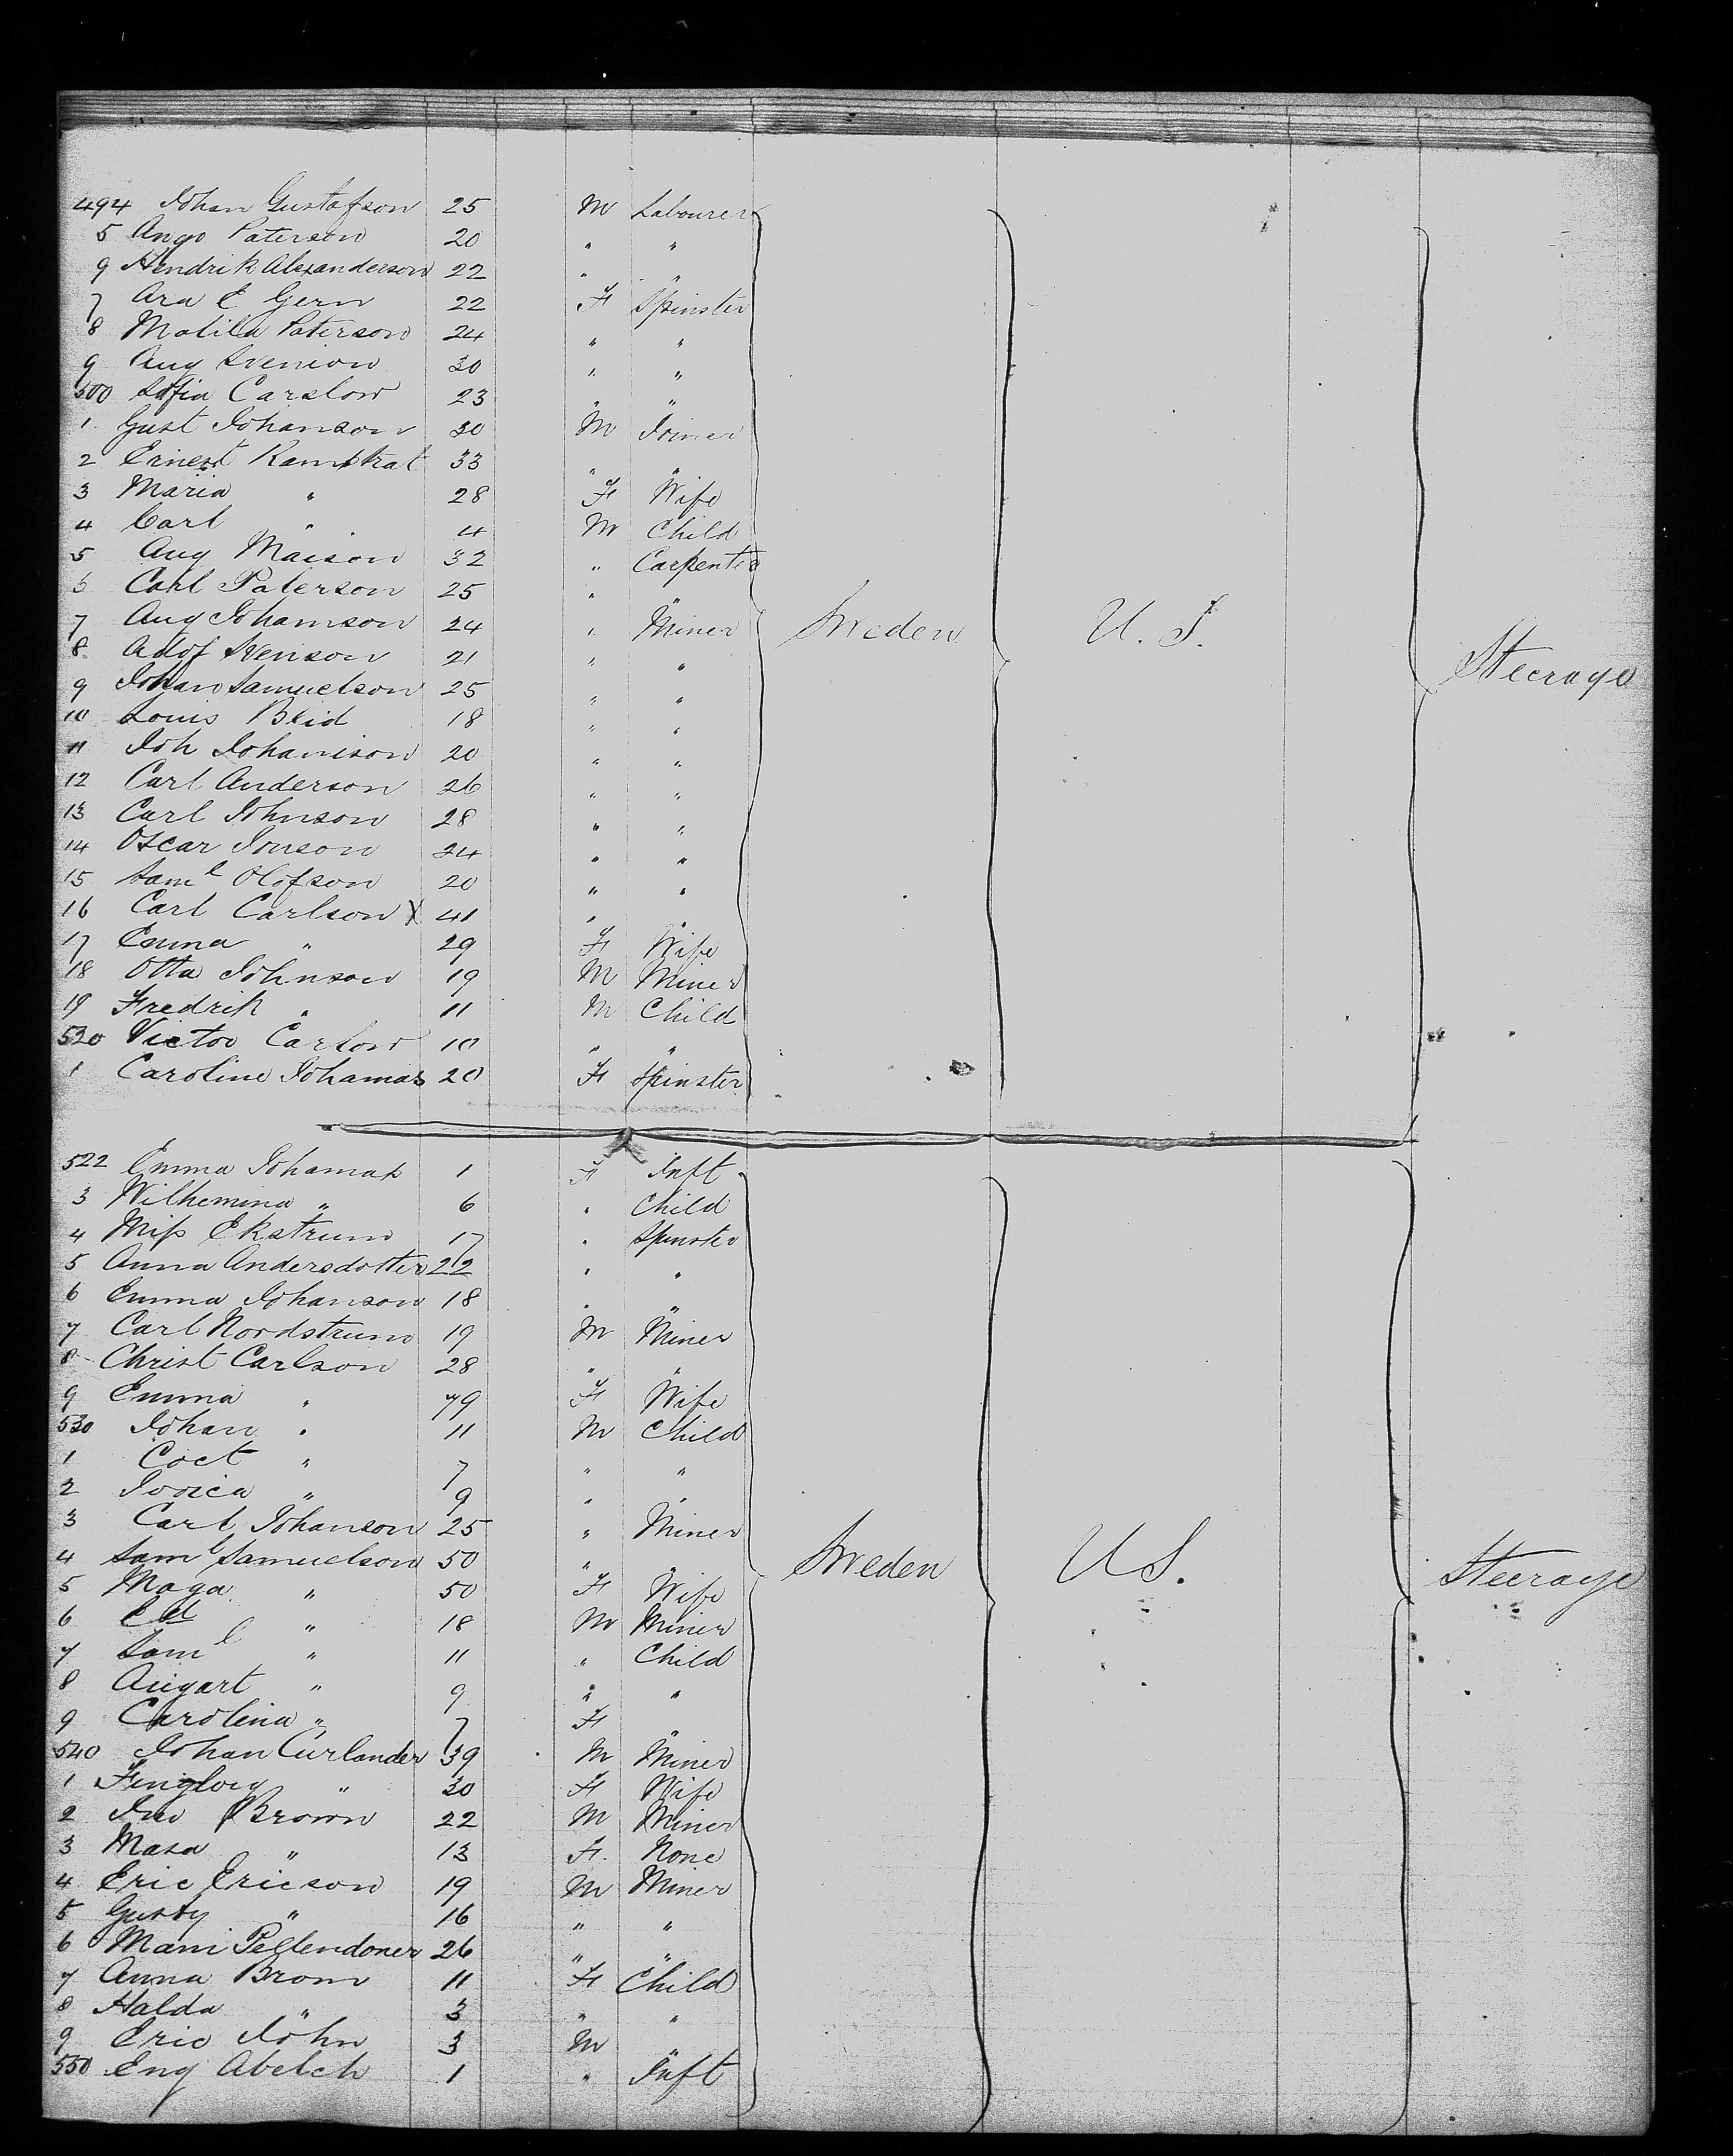 494 Johan Gustafson 25 M Labourer
5 Ango Paterson 20 " "
9 Hendrik Alexanderson 22 " "
7 Ara E Gern 22 F Spinster
8 Matila Paterson 24 " "
9 Aug Svenion 30 " "
500 Sofia Carslow 23 " "
1 Gust Johanson 30 M Joiner
2 Ernest Ramstrat 33 " "
3 Maria " 28 F Wife
4 Carl " 4 M Child
5 Aug Maison 32 " Carpenter
6 Carl Paterson 25 " "
7 Aug Johamson 24 " Miner Sweden U. S.
8 Adof Svenson 21 " " Steerage
9 Johan Samuelson 25 " "
10 Louis Beid 18 " "
11 Joh Johanison 20 " "
12 Carl Anderson 26 " "
13 Carl Johnson 28 " "
14 Oscar Jonson 24 " "
15 Saml Olofson 20 " "
16 Carl Carlson X 41 " "
17 Emma " 29 F Wife
18 Otta Johnson 19 M Miner
19 Fredrik " 11 M Child
520 Victor Carlow 10 " "
1 Caroline Johamas 20 F Spinster
522 Emma Johamas 1 F Inft
3 Wilhemina " 6 " Child
4 Miss Ekstrum 17 " Spinster
5 Anna Andersdotter 22 " "
6 Emma Johanson 18 " "
7 Carl Nordstrum 19 M Miner
8 Christ Carlson 28 " "
9 Emma " 49 F Wife
530 Johan " 11 M Child
1 Coct " 7 " "
2 " 9 " "
3 Carl Johanson 25 " Miner
4 Saml Samuelson 50 " " Sweden U S. Steerage
5 Maga " 50 F Wife
6 Ed " 18 M Miner
7 Saml " 11 " Child
8 Augart " 9 " "
9 Carolina " 7 F "
540 Johan Curlander 39 M Miner
1 " 30 F Wife
2 Jno Brown 22 M Miner
3 Masa " 13 F. None
4 Eric Ericson 19 M Miner
5 Gusty " 16 " "
6 Mani Pellendoner 26 " "
7 Anna Brom 11 F Child
8 Halda " 3 " "
9 Eric John 3 M "
550 Eng Abelch 1 " Inft